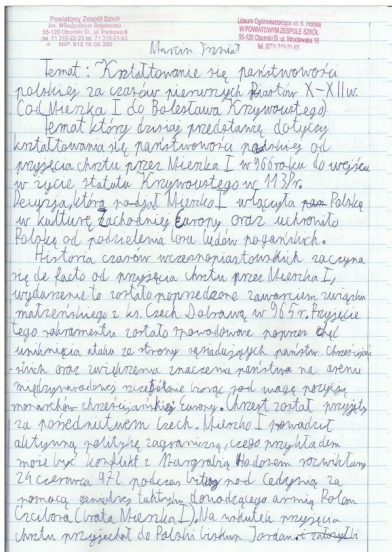 Powiatowy Zespół Szkół
im. Władysława Reymonta
55-120 Oborniki Śl., ul. Parkowa 8
tel. 71 310-22-23 tel. 71 310-21-63
NIP: 915 16 03 260
Liceum Ogólnokształcące
W POWIATOWYM ZESPOLE SZKÓŁ
55-120 Oborniki Śl. ul. Wrocławska
tel.
Marcin
Temat: Kształtowanie się państwowości
polskiej za czasów pierwszych Piastów X-XIIw.
(od Mieszka I do Bolesława Krzywoustego)
Temat który dzisiaj przedstawię dotyczy
kształtowania się państwowości polskiej od
przyjęcia chrztu przez Mieszka I w 966 roku do wejścia
w życie statutu Krzywoustego w 1138r.
Decyzja którą podjął Mieszko I włączyła Polskę
w kulturę Zachodniej Europy oraz uchroniło
Polskę od podzielenia losu ludów pogańskich.
Historia czasów wczesnopiastowskich zaczyna
się de facto od przyjęcia chrztu przez Mieszka I,
wydarzenie to zostało poprzedzone zawarciem związku
małżeńskiego z ks. Czech Dobrawą w 965r. Przyjęcie
tego sakramentu zostało spowodowane poprzez chęć
uniknięcia ataku ze strony sąsiadujących państw chrześcijań
-skich oraz zwiększenia znaczenia państwa na arenie
międzynarodowej biorąc pod uwagę pozycję
monarchów chrześcijańskiej Europy. Chrzest został przyjęty
za pośrednictwem Czech. Mieszko I prowadził
aktywną politykę zagraniczną, czego przykładem
może być konflikt z Margrabią Hodonem rozwikłany
24 czerwca 972 podczas bitwy pod Cedynią za
pomocą taktyki dowodzącego armią Polan
Czcibora (brata Mieszka I). Na skutek przyjęcia
chrztu przyjechał do Polski biskup Jordan